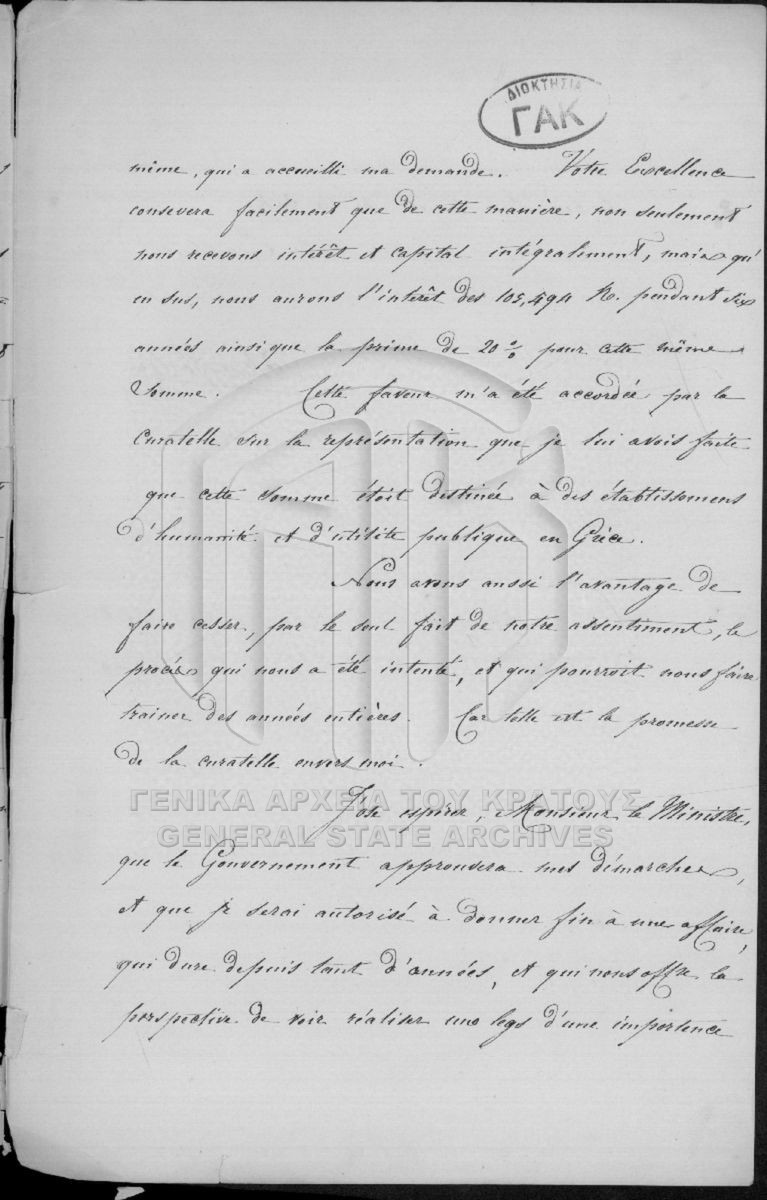 ΔΙΟΚΤΗΣΙΑ
ΓΑΚ
même, qui a accueilli ma demande. Votre Excellence
consevera facilement que de cette manière, non seulement
nous recevons intérêt et capital intégralement, mais qu'
en sus, nous aurons l'intérêt des 105,494 R. pendant six
années ainsi que la prime de 20 % pour cette même
somme. Cette faveur m'a été accordée par la
Curatelle sur la représentation que je lui avois faite
que cette somme étoit destinée à des établissemens
d'humanité et d'utilité publique en Grèce.
Nous avons aussi l'avantage de
faire cesser, par le seul fait de notre assentiment, le
procès qui nous a été intenté, et qui pourroit nous faire
trainer des années entières. Car telle est la promesse
de la curatelle envers moi.
J'ose espérer, Monsieur le Ministre,
que le Gouvernement approuvera mes démarches,
et que je serai autorisé à donner fin à une affaire,
qui dure depuis tant d'années, et qui nous offre la
perspective de voir réaliser un legs d'une importence
ΓΕΝΙΚΑ ΑΡΧΕΙΑ ΤΟΥ ΚΡΑΤΟΥΣ
GENERAL STATE ARCHIVES